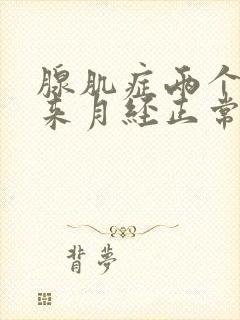 腺肌症两个
来月经正常
背梦